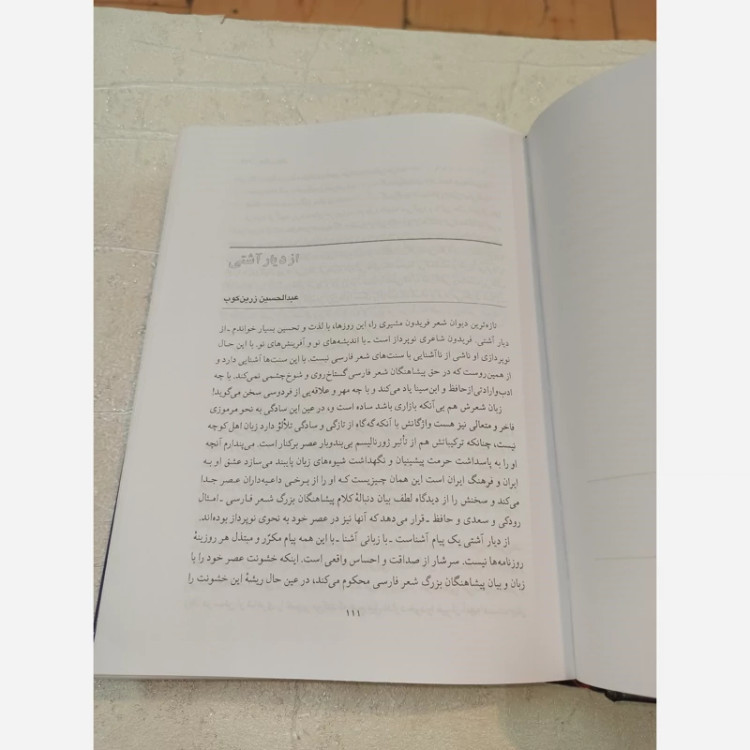 از دیار آشتی
عبدالحسین زرین‌کوب
تازه‌ترین دیوان شعر فریدون مشیری را، این روزها، با لذت و تحسین بسیار خواندم ـ از
دیار آشتی. فریدون شاعری نوپرداز است ـ با اندیشه‌های نو و آفرینش‌های نو. با این حال
نوپردازی او ناشی از ناآشنایی با سنت‌های شعر فارسی نیست. با این سنت‌ها آشنایی دارد و
از همین‌روست که در حق پیشاهنگان شعر فارسی گستاخ‌روی و شوخ‌چشمی نمی‌کند. با چه
ادب و ارادتی از حافظ و ابن‌سینا یاد می‌کند و با چه مهر و علاقه‌یی از فردوسی سخن می‌گوید!
زبان شعرش هم بی‌آنکه بازاری باشد ساده است و، در عین این سادگی به نحو مرموزی
فاخر و متعالی نیز هست واژگانش با آنکه گه‌گاه از تازگی و سادگی تلألؤ دارد زبان اهل کوچه
نیست، چنانکه ترکیباتش هم از تأثیر ژورنالیسم بی‌بندوبار عصر برکنار است. می‌پندارم آنچه
او را به پاسداشت حرمت پیشینیان و نگهداشت شیوه‌های زبان پایبند می‌سازد عشق او به
ایران و فرهنگ ایران است این همان چیزیست که او را از برخی داعیه‌داران عصر جدا
می‌کند و سخنش را از دیدگاه لطف بیان دنبالهٔ کلام پیشاهنگان بزرگ شعر فارسی ـ امثال
رودکی و سعدی و حافظ ـ قرار می‌دهد که آنها نیز در عصر خود به نحوی نوپرداز بوده‌اند.
از دیار آشتی یک پیام آشناست ـ با زبانی آشنا ـ با این همه پیام مکرّر و مبتذل هر روزینهٔ
روزنامه‌ها نیست. سرشار از صداقت و احساس واقعی است. اینکه خشونت عصر خود را با
زبان و بیان پیشاهنگان بزرگ شعر فارسی محکوم می‌کند، در عین حال ریشهٔ این خشونت را
۱۱۱